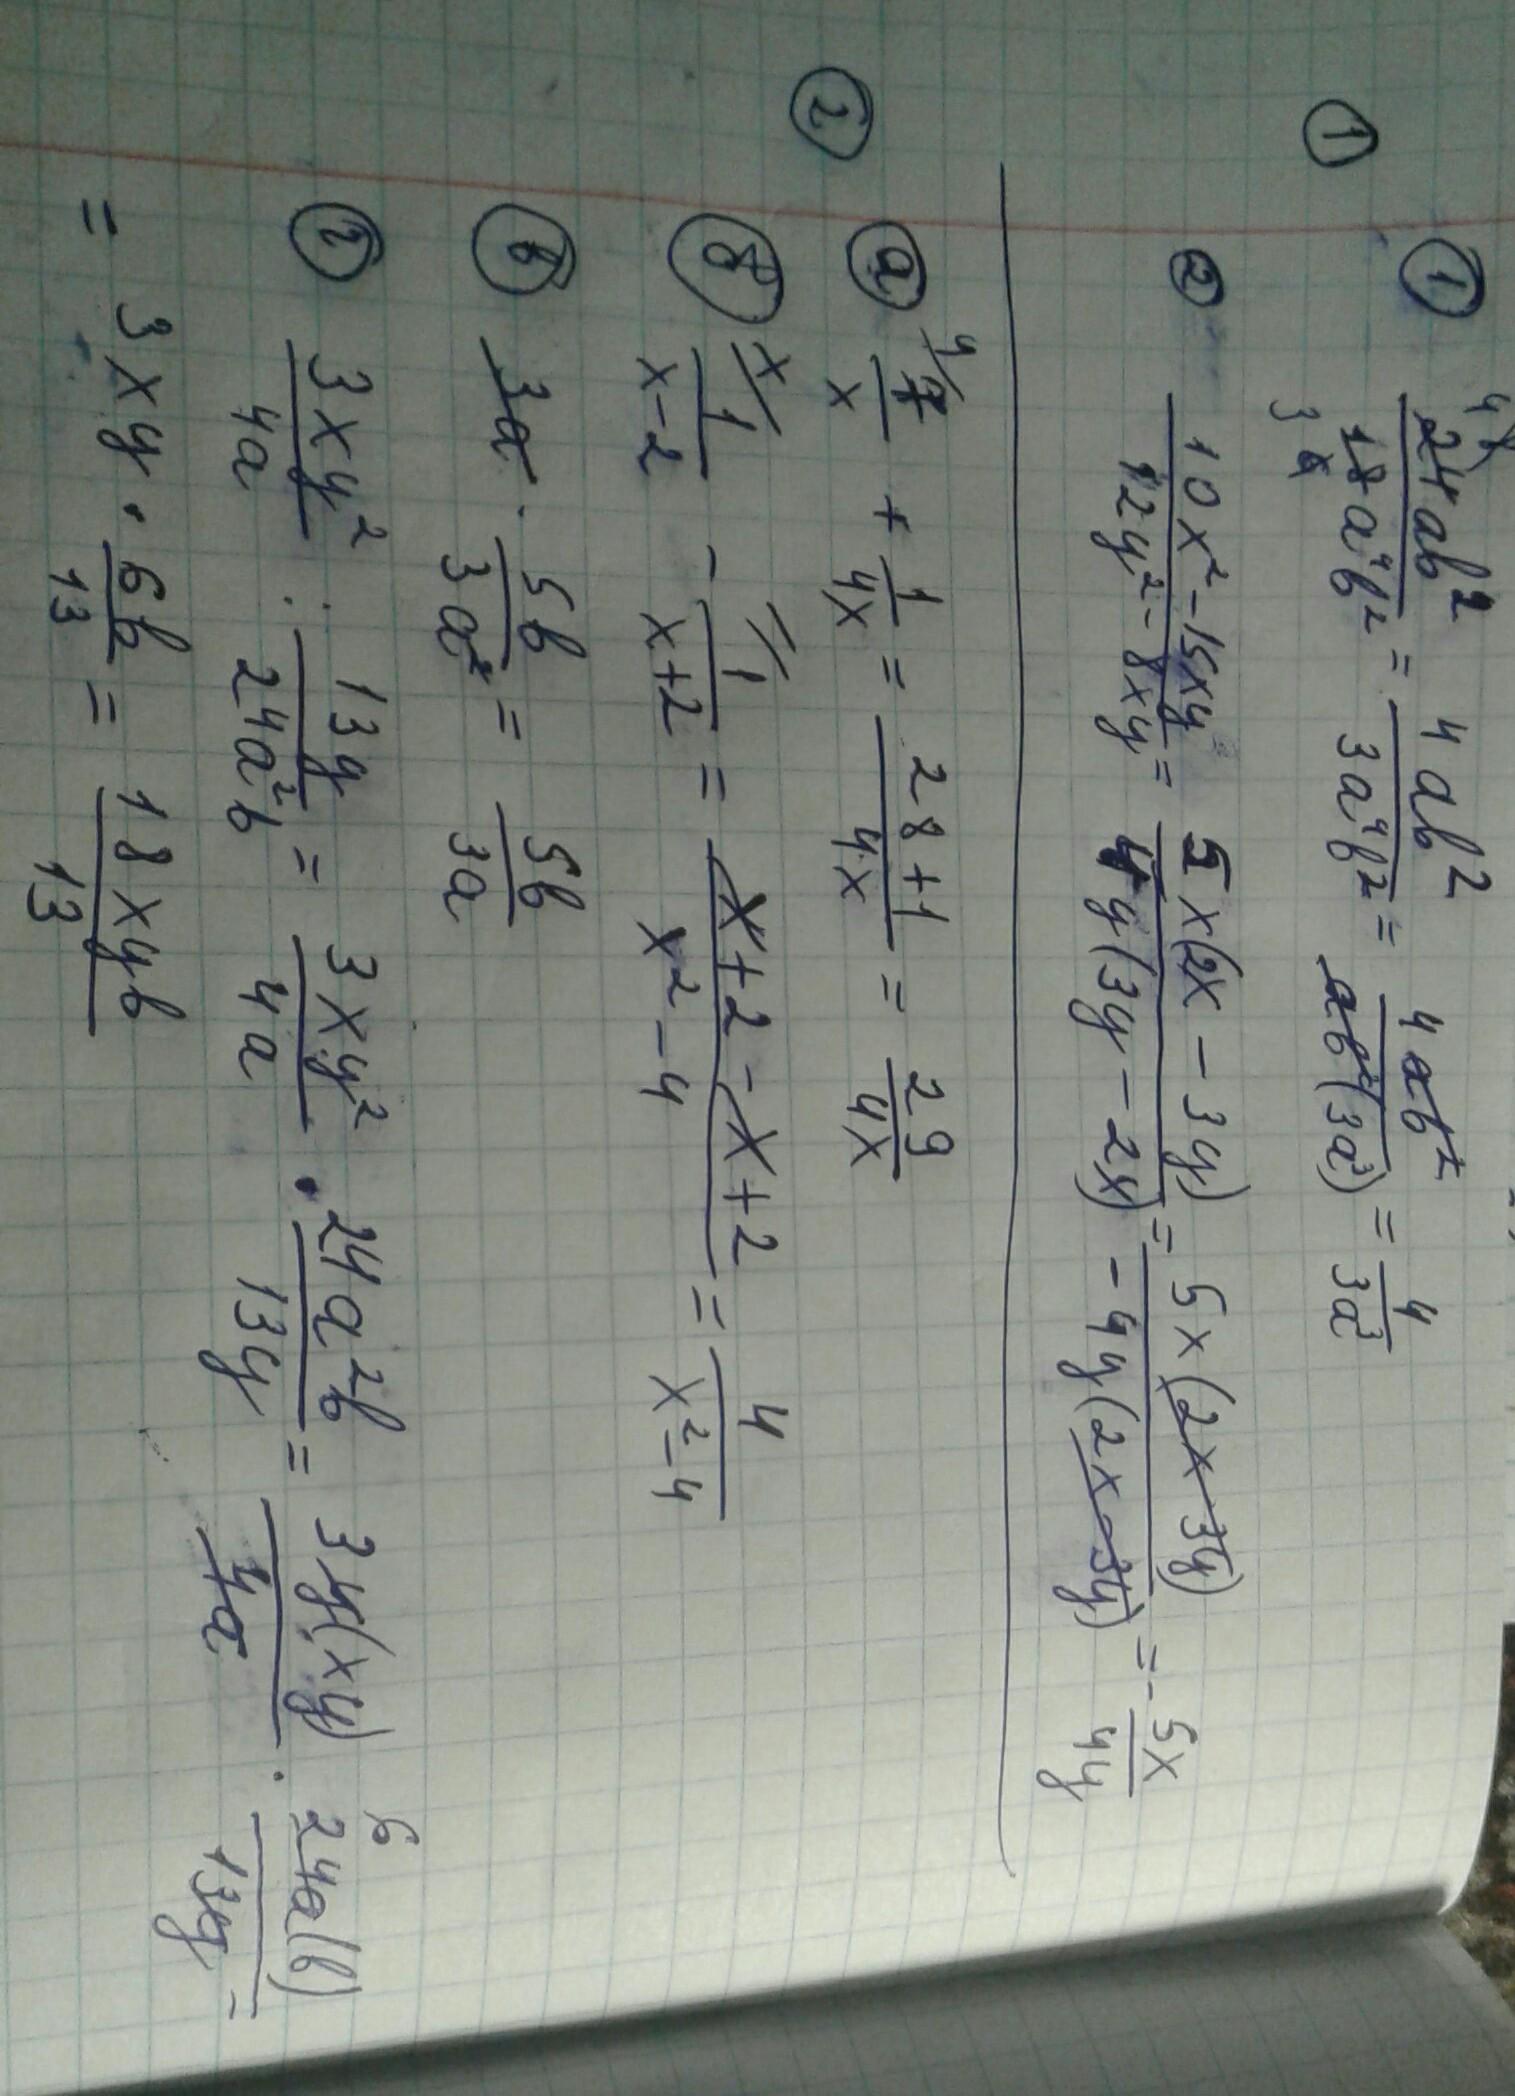 ① ① 24ab²/18a⁴b² = 4ab²/3a⁴b² = 4ab²/ab²(3a³) = 4/3a³
② 10x²-15xy/12y²-8xy = 5x(2x-3y)/4y(3y-2x) = 5x(2x-3y)/-4y(2x-3y) = -5x/4y
② ⓐ 7/x + 1/4x = 28+1/4x = 29/4x
ⓑ 1/x-2 - 1/x+2 = x+2-x+2/x²-4 = 4/x²-4
ⓑ 3a · 5b/3a² = 5b/3a
② 3xy²/4a : 13y/24a²b = 3xy²/4a · 24a²b/13y = 3y(xy)/4a · 24a(b)/13y =
= 3xy · 6b/13 = 18xyb/13